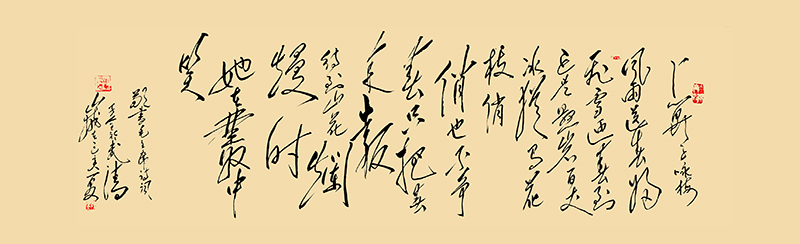 卜算子咏梅
风雨送春归
飞雪迎春到
已是悬岩百丈
冰犹有花
枝俏
俏也不争
春只把春
来报
待到山花烂
熳时
她在丛中
笑
敬书毛主席诗词